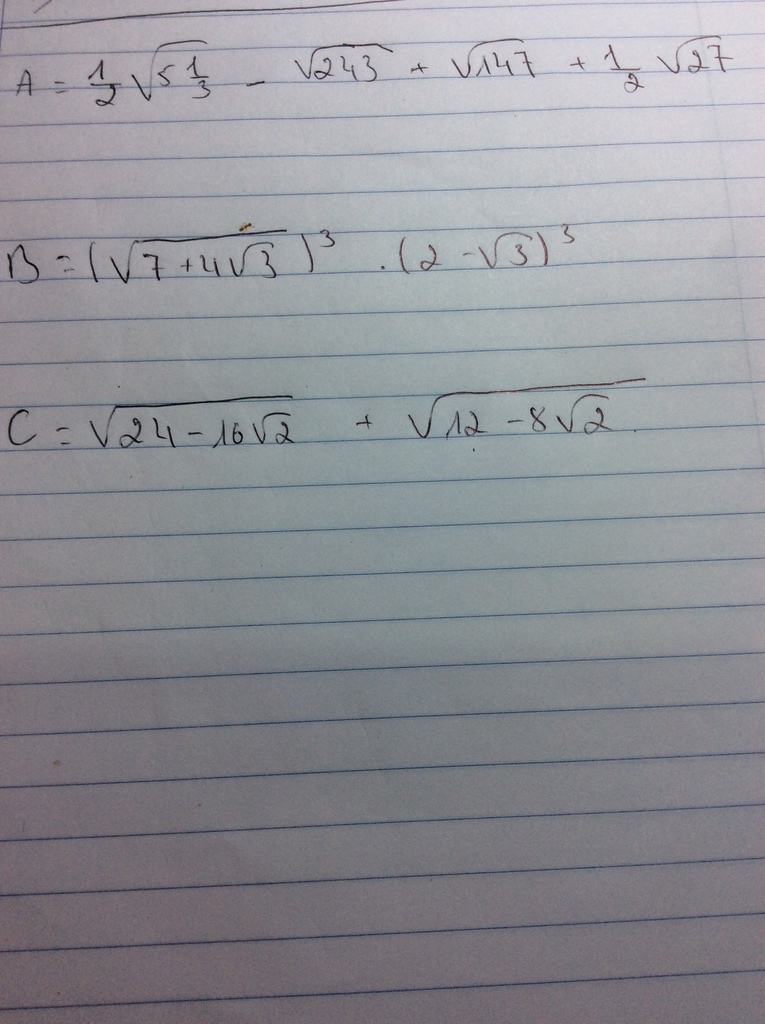 A = 1/2 √(5 1/3) - √243 + √147 + 1/2 √27
B = (√(7 + 4√3))³ . (2 - √3)³
C = √(24 - 16√2) + √(12 - 8√2)